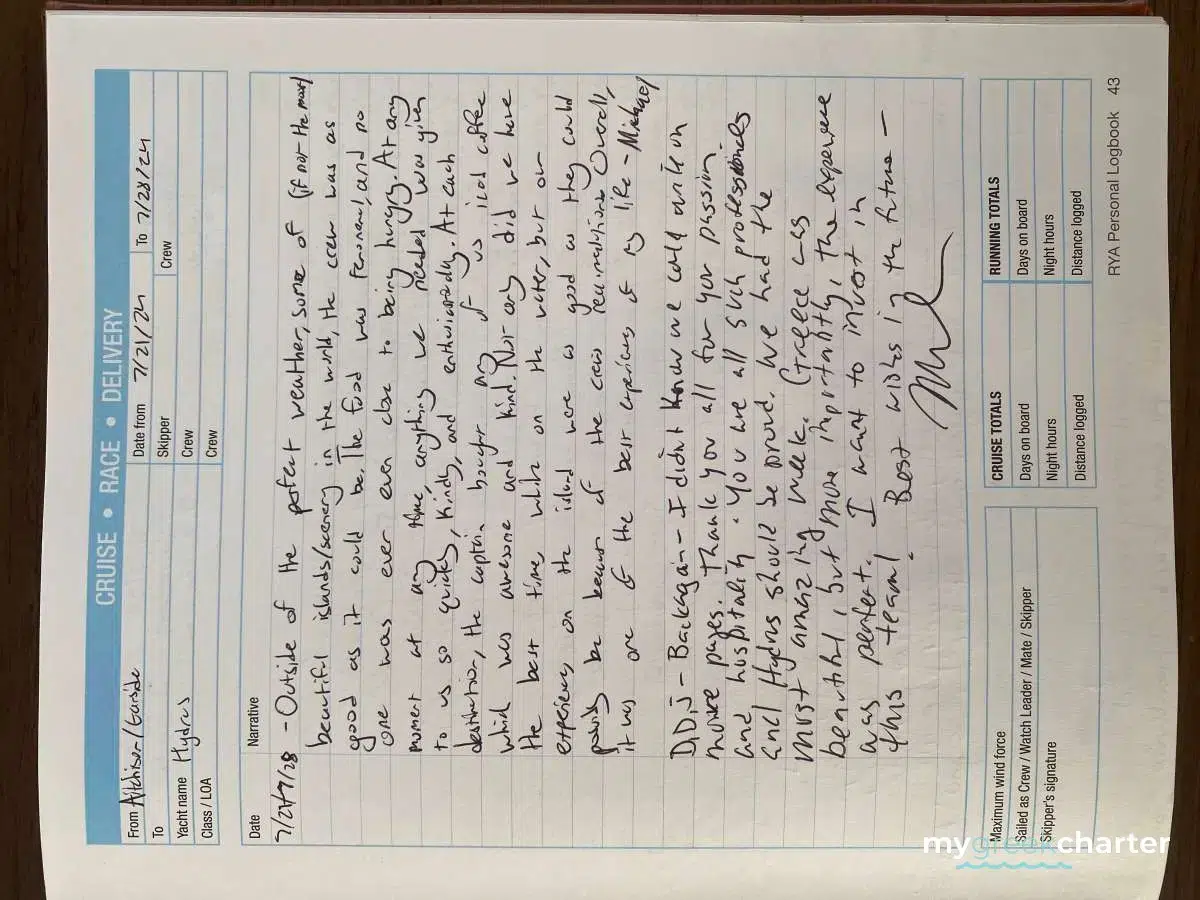 CRUISE • RACE • DELIVERY
From Aitchison/Garside
Date from 7/21/24 To 7/28/24
To
Skipper
Crew
Yacht name Hydrus
Crew
Class / LOA
Crew
Date
Narrative
7/21-7/28 - Outside of the perfect weather, some of (if not the most)
beautiful islands/scenery in the world, the crew was as
good as it could be. The food was Fenomenal, and no
one was ever even close to being hungry. At any
moment at any time, anything we needed was given
to us so quickly, kindly, and enthusiastically. At each
destination, the captain bought any of us iced coffee
which was awesome and kind. Not only did we have
the best time while on the water, but our
experiences on the island were as good as they could
possibly be because of the crews recommendations. Overall,
it was one of the best experiences of my life - Michael
D,D,J - Back again - I didn't know we could write on
more pages. Thank you all for your passion
and hospitality. You are all such professionals
and Hydrus should be proud. We had the
most amazing week. Greece was
beautiful, but more importantly, the experience
was perfect. I want to invest in
this team!
Best wishes in the future -
Maximum wind force
Sailed as Crew / Watch Leader / Mate / Skipper
Skipper's signature
CRUISE TOTALS
Days on board
Night hours
Distance logged
RUNNING TOTALS
Days on board
Night hours
Distance logged
RYA Personal Logbook 43
mygreekcharter